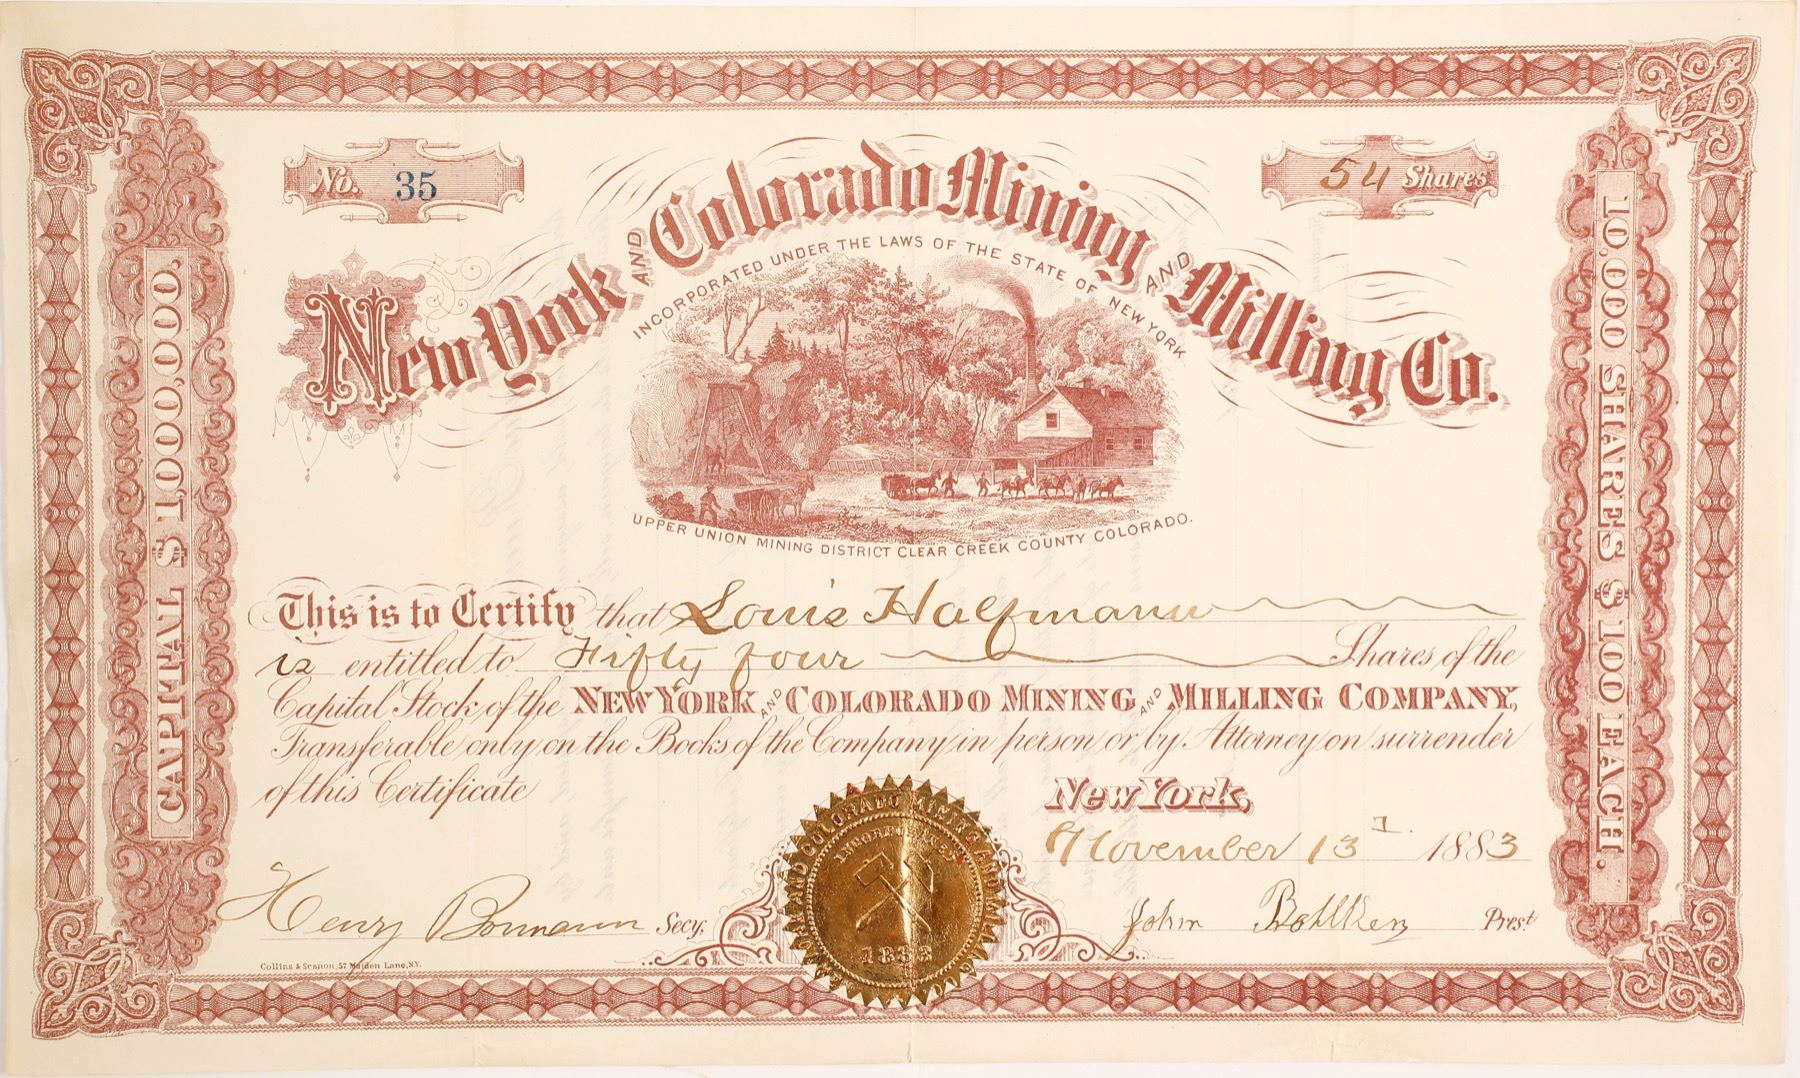 No. 35
54 Shares
New York AND Colorado Mining AND Milling Co.
INCORPORATED UNDER THE LAWS OF THE STATE OF NEW YORK
UPPER UNION MINING DISTRICT CLEAR CREEK COUNTY COLORADO.
CAPITAL $ 1,000,000.
10,000 SHARES $ 100 EACH.
This is to Certify that Louis Halfmann
is entitled to Fifty four Shares of the
Capital Stock of the NEW YORK AND COLORADO MINING AND MILLING COMPANY,
Transferable only on the Books of the Company in person or by Attorney on surrender
of this Certificate
New York,
November 13 1883
Henry Bormann Secy.
John Prest
COLORADO MINING AND
INCORPORATED
1883
Collins & Sesnon, 57 Maiden Lane, N.Y.